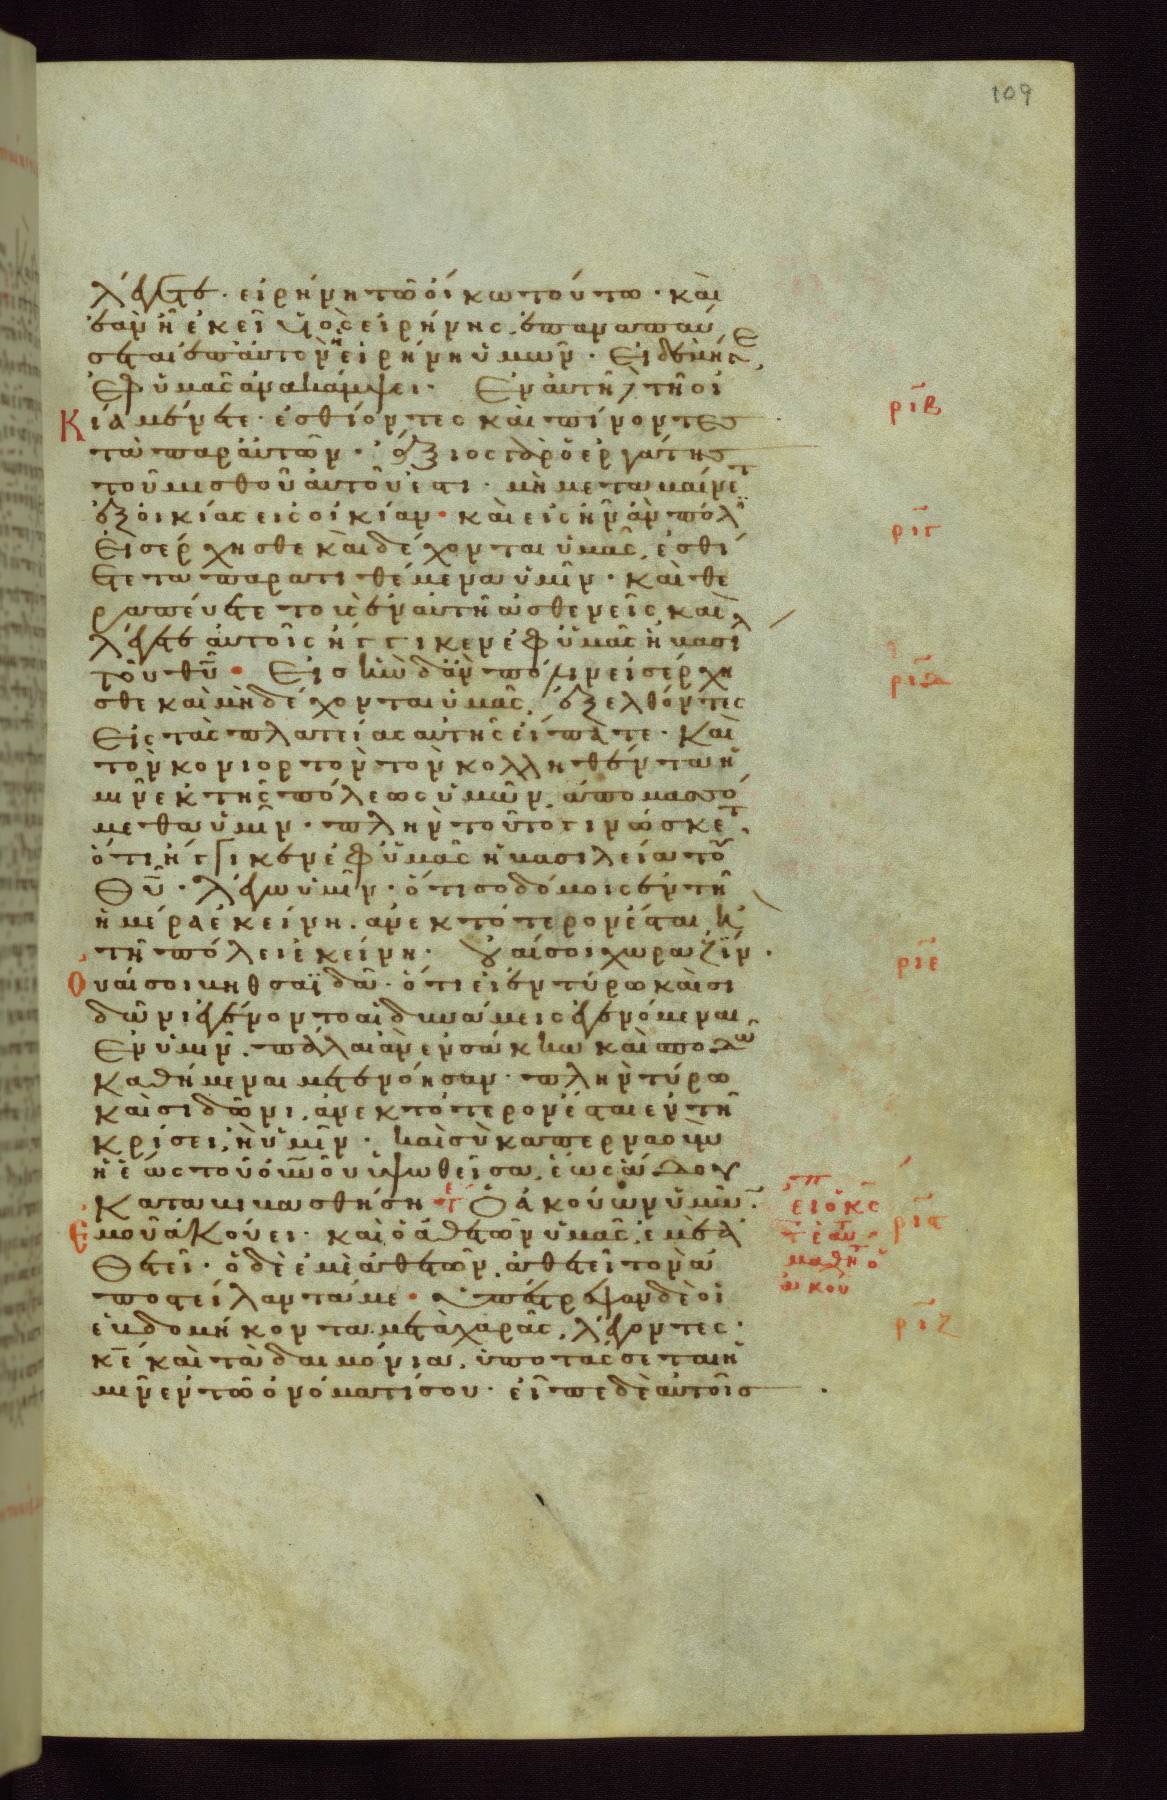 109
λέγετε· εἰρήνη τῶ οἴκω τούτω· καὶ
ἐὰν ἦ ἐκεῖ υἱὸς εἰρήνης, ἐπαναπαύ
σεται ἐπ αὐτὸν ἡ εἰρήνη ὑμῶν· εἰ δὲ μήγε,
ἐφ ὑμᾶς ἀνακάμψει· Ἐν αὐτῆ δὲ τῆ οἰ
κία μένετε· ἐσθίοντες καὶ πίνοντες
τὰ παρ αὐτῶν· ἄξιος γὰρ ὁ ἐργάτης
τοῦ μισθοῦ αὐτοῦ ἐστι· μὴ μεταβαίνετ
ἐξ οἰκίας εἰς οἰκίαν· καὶ εἰς ἣν ἂν πόλι
εἰσέρχησθε καὶ δέχονται ὑμᾶς, ἐσθί
ετε τὰ παρατιθέμενα ὑμῖν· καὶ θε
ραπεύετε τοὺς ἐν αὐτῆ ἀσθενεῖς καὶ
λέγετε αὐτοῖς ἤγγικεν ἐφ ὑμᾶς ἡ βασιλ
τοῦ θῦ· Εἰς ἣν δ ἂν πόλιν εἰσέρχη
σθε καὶ μὴ δέχονται ὑμᾶς, ἐξελθόντες
εἰς τὰς πλατείας αὐτῆς εἴπατε· Καὶ
τὸν κονιορτὸν τὸν κολληθέντα ἡ
μῖν ἐκ τῆς πόλεως ὑμῶν, ἀπομασσό
μεθα ὑμῖν· πλὴν τοῦτο γινώσκετ,
ὅτι ἤγγικεν ἐφ ὑμᾶς ἡ βασιλεία τοῦ
θῦ· λέγω ὑμῖν· ὅτι σοδόμοις ἐν τῆ
ἡμέρα ἐκείνη, ἀνεκτότερον ἔσται, ἢ
τῆ πόλει ἐκείνη· οὐαί σοι χωραζΐν·
Οὐαί σοι βηθσαϊδά· ὅτι εἰ ἐν τύρω καὶ σι
δῶνι ἐγένοντο αἱ δυνάμεις αἱ γενόμεναι
ἐν ὑμῖν, πάλαι ἂν ἐν σάκκω καὶ σποδῶ
καθήμεναι μετενόησαν· πλὴν τύρω
καὶ σιδῶνι, ἀνεκτότερον ἔσται ἐν τῆ
κρίσει, ἢ ὑμῖν· καὶ σὺ καπερναοὺμ
ἡ ἕως τοῦ οὐνοῦ ὑψωθεῖσα, ἕως ἅδου
καταβιβασθήση Ὁ ἀκούων ὑμῶν,
ἐμοῦ ἀκούει· καὶ ὁ ἀθετῶν ὑμᾶς, ἐμὲ ἀ
θετεῖ· ὁ δὲ ἐμὲ ἀθετῶν, ἀθετεῖ τὸν ἀ
ποστείλαντά με· ὑπέστρεψαν δὲ οἱ
ἑβδομήκοντα μετὰ χαρᾶς, λέγοντες·
κε καὶ τὰ δαιμόνια, ὑποτάσσεται ἡ
μῖν ἐν τῶ ὀνόματί σου· εἶπε δὲ αὐτοῖς
ριβ
ριγ
ριδ
ριε
ρις
ριζ